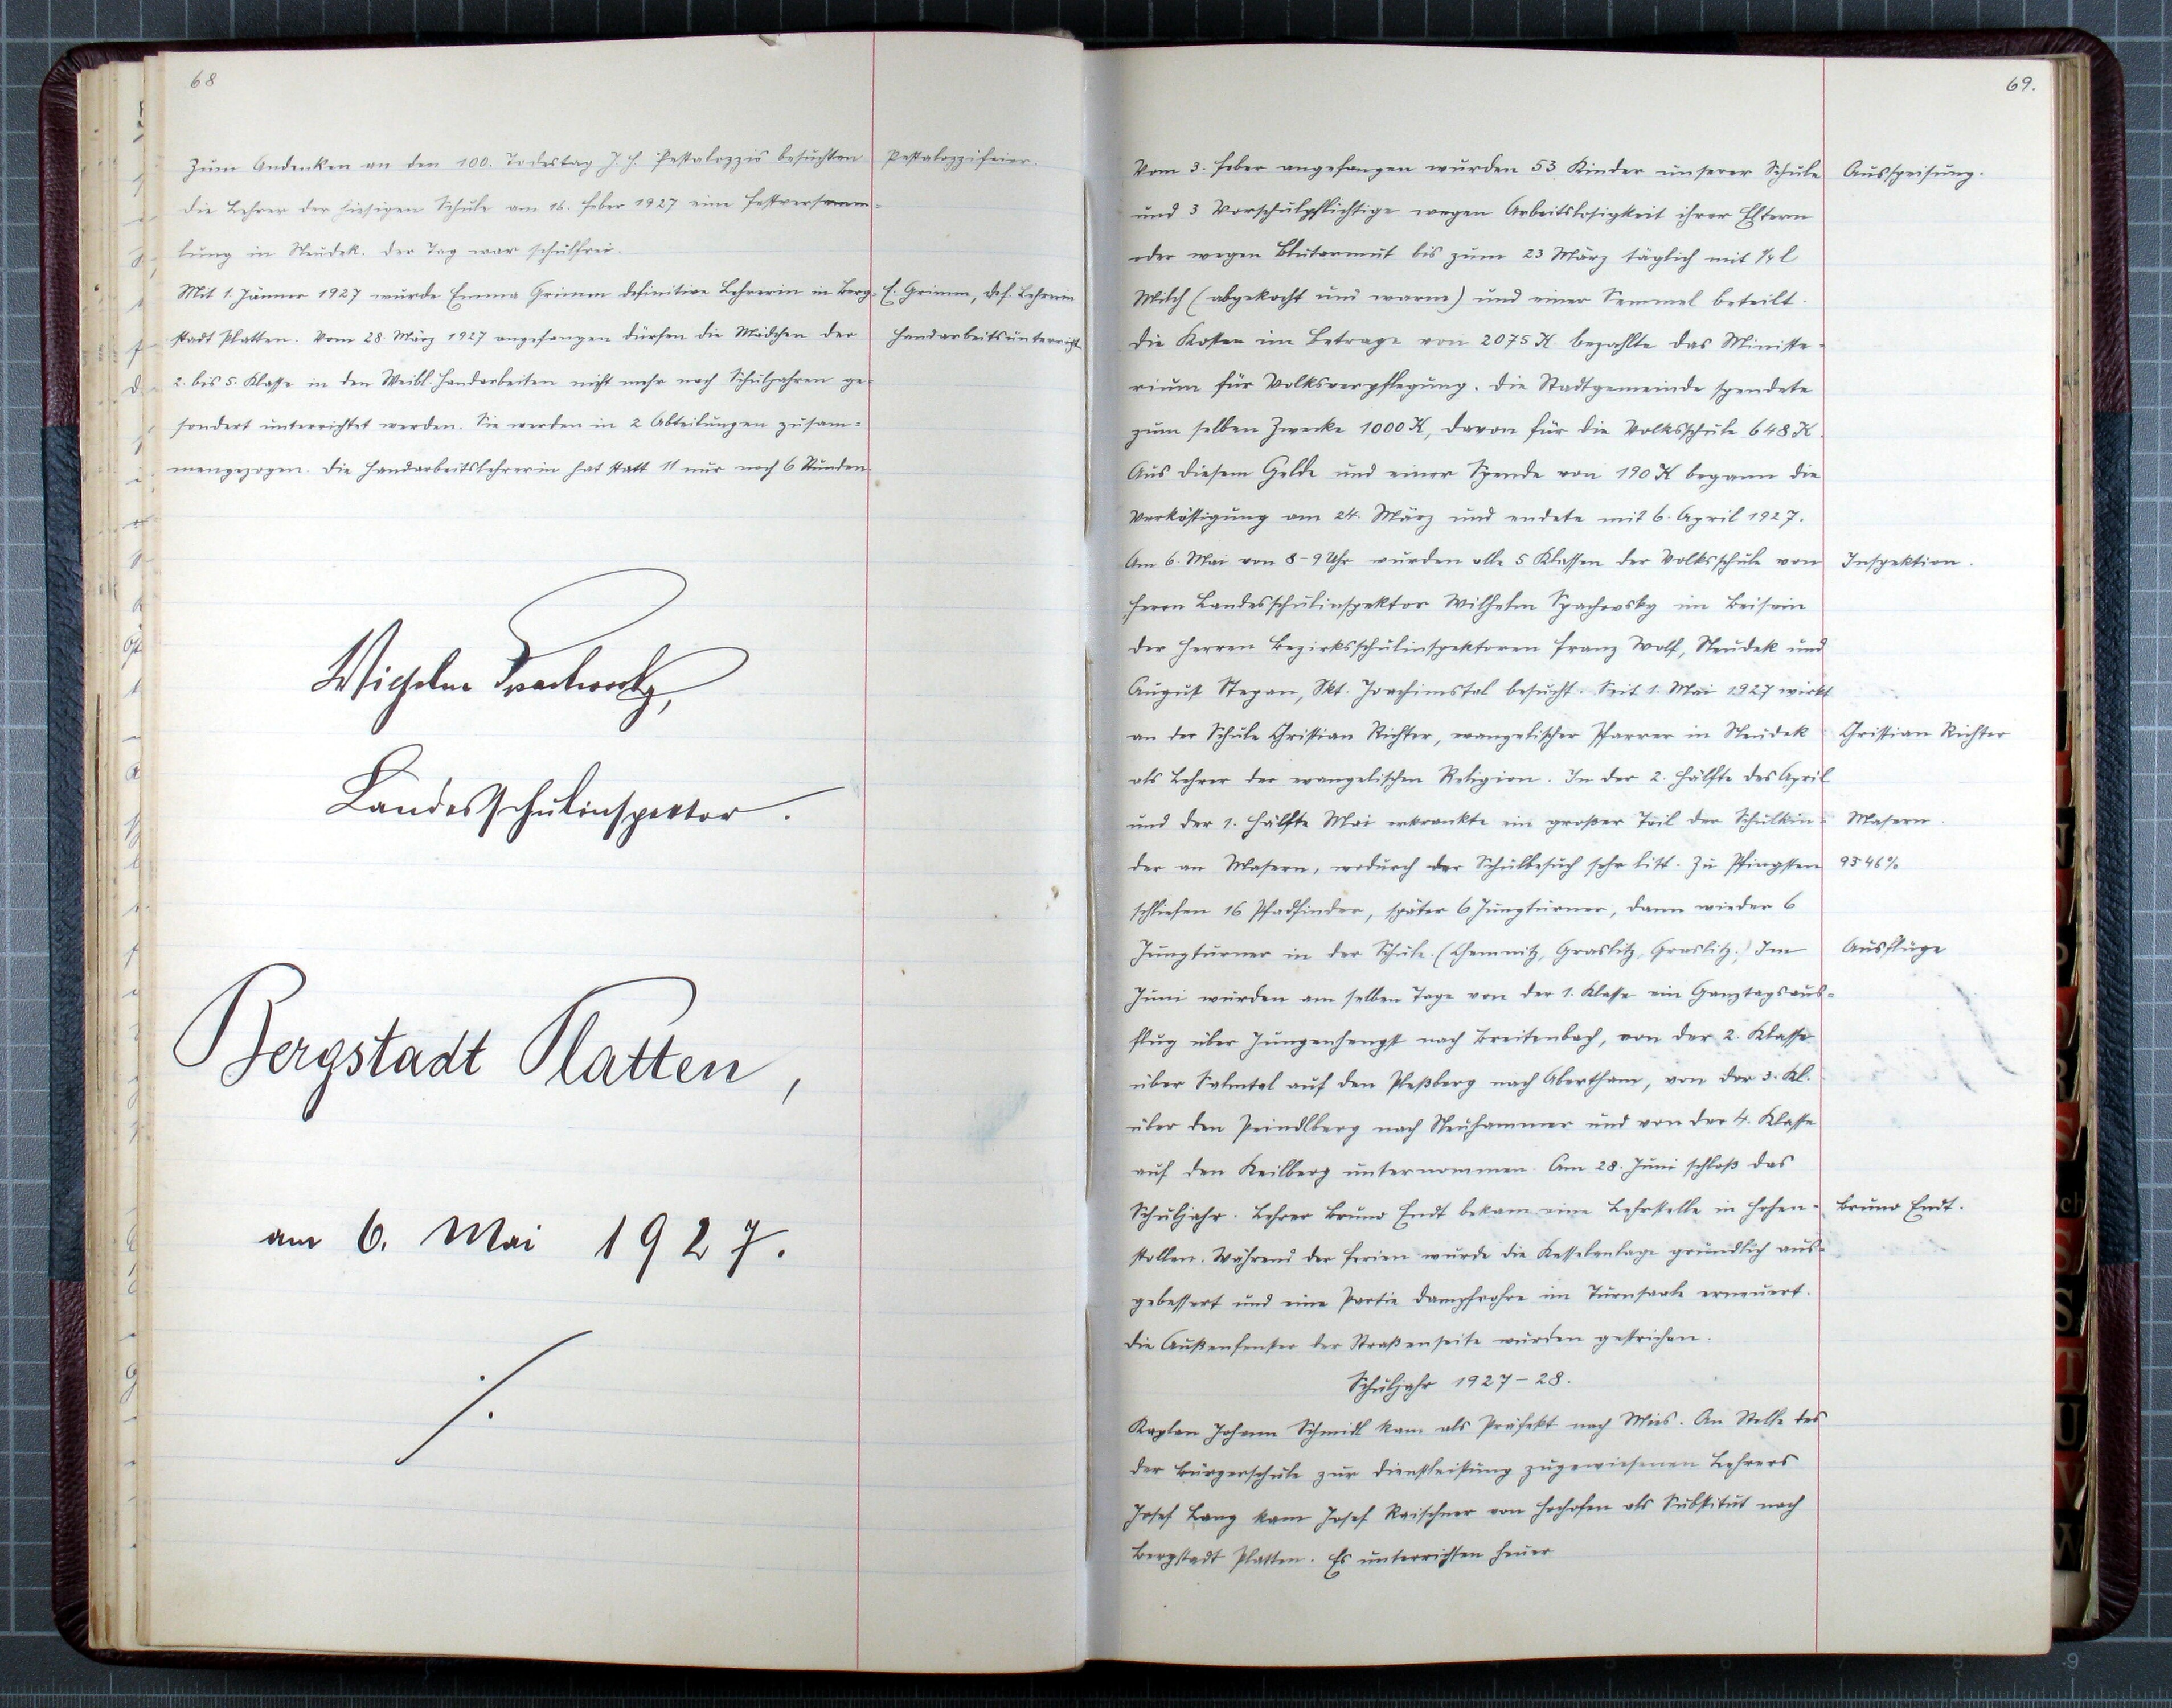 68
Zum Andenken an den 100. Todestag J. H. Pestalozzis besuchten
Pestalozzifeier.
die Lehrer der hiesigen Schule am 16. Feber 1927 eine Festversamm=
lung in Neudek. Der Tag war schulfrei.
Mit 1. Jänner 1927 wurde Emma Grimm definitive Lehrerin in Berg=
E. Grimm, def. Lehrerin
stadt Platten. Vom 28. März 1927 angefangen dürfen die Mädchen der
Handarbeitsunterricht
2. bis 5. Klasse in den Weibl. Handarbeiten nicht mehr nach Schuljahren ge=
sondert unterrichtet werden. Sie werden in 2 Abteilungen zusam=
mengezogen. Die Handarbeitslehrerin hat statt 11 nur noch 6 Stunden.
Wilhelm
Landesschulinspektor.
Bergstadt Platten,
am 6. Mai 1927.
./.
69.
Vom 3. Feber angefangen wurden 53 Kinder unserer Schule
Ausspeisung.
und 3 Vorschulpflichtige wegen Arbeitslosigkeit ihrer Eltern
oder wegen Blutarmut bis zum 23 März täglich mit 1/4 l
Milch (abgekocht und warm) und einer Semmel beteilt.
Die Kosten im Betrage von 2075 K bezahlte das Ministe=
rium für Volksverpflegung. Die Stadtgemeinde spendete
zum selben Zwecke 1000 K, davon für die Volksschule 648 K.
Aus diesem Gelde und einer Spende von 190 K begann die
Verköstigung am 24. März und endete mit 6. April 1927.
Am 6. Mai von 8-9 Uhr wurden alle 5 Klassen der Volksschule von
Inspektion.
Herrn Landesschulinspektor Wilhelm Spachovsky im Beisein
der Herren Bezirksschulinspektoren Franz Wolf, Neudek und
August Stepan, Skt. Joachimstal besucht. Seit 1. Mai 1927 wirkt
an der Schule Christian Richter, evangelischer Pfarrer in Neudek
Christian Richter
als Lehrer der evangelischen Religion. In der 2. Hälfte des April
und der 1. Hälfte Mai erkrankte ein großer Teil der Schulkin=
Masern.
der an Masern, wodurch der Schulbesuch sehr litt. Zu Pfingsten
93·46%
schliefen 16 Pfadfinder, später 6 Jungturner, dann wieder 6
Jungturner in der Schule. (Chemnitz, Graslitz, Graslitz.) Im
Ausflüge
Juni wurden am selben Tage von der 1. Klasse ein Ganztagsaus=
flug über Jungenhengst nach Breitenbach, von der 2. Klasse
über Salmtal auf den Pleßberg nach Abertham, von der 3. Kl.
über den Peindlberg nach Neuhammer und von der 4. Klasse
auf den Keilberg unternommen. Am 28. Juni schloß das
Schuljahr. Lehrer Bruno Endt bekam eine Lehrstelle in Hohen=
Bruno Endt.
stollen. Während der Ferien wurde die Kesselanlage gründlich aus=
gebessert und eine Partie Dampfrohre im Turnsaale erneuert.
Die Außenfenster der Straßenseite wurden gestrichen.
Schuljahr 1927-28.
Kaplan Johann Schmidl kam als Präfekt nach Mies. An Stelle des
der Bürgerschule zur Dienstleistung zugewiesenen Lehrers
Josef Lang kam Josef Raischner von Hochofen als Substitut nach
Bergstadt Platten. Es unterrichten heuer